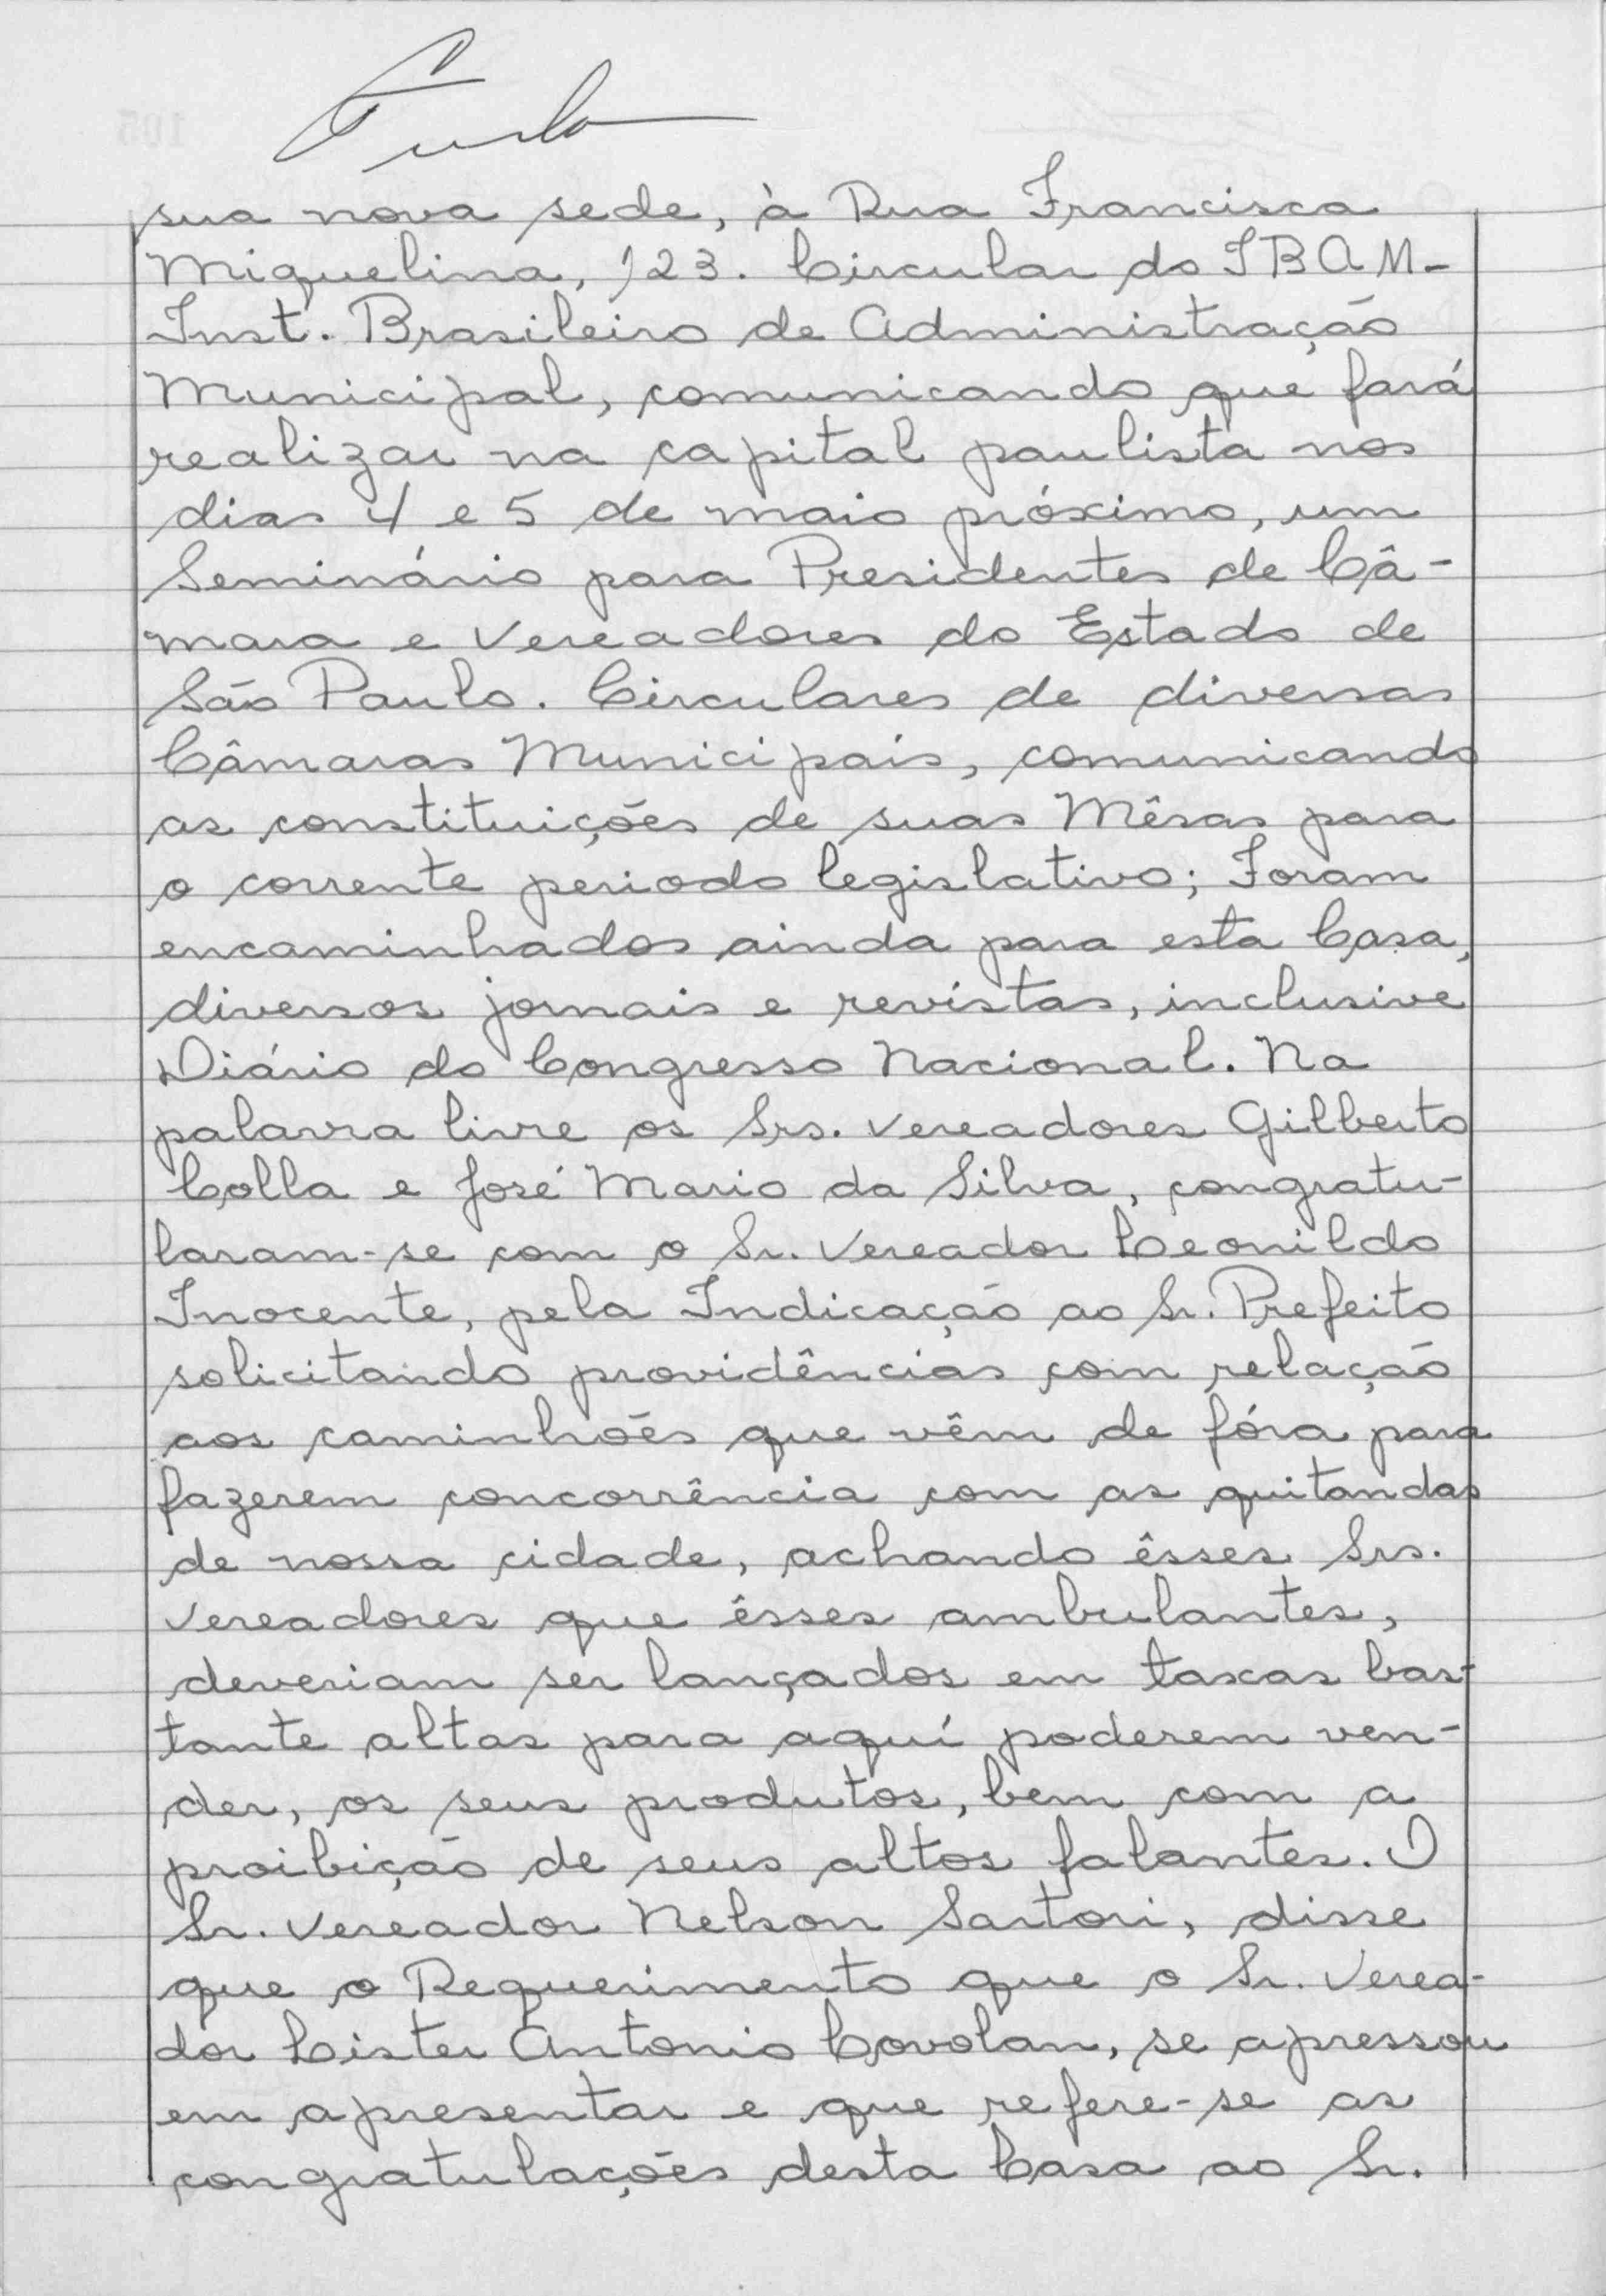 sua nova sede, à Rua Francisca
Miquelina, 123. Circular do IBAM-
Inst. Brasileiro de Administração
Municipal, comunicando que fará
realizar na capital paulista nos
dias 4 e 5 de maio próximo, um
Seminário para Presidentes de Câ-
mara e Vereadores do Estado de
São Paulo. Circulares de diversas
Câmaras Municipais, comunicando
as constituições de suas Mêsas para
o corrente periodo legislativo; Foram
encaminhados ainda para esta Casa,
diversos jornais e revístas, inclusive
Diário do Congresso Nacional. Na
palavra livre os Srs. Vereadores Gilberto
Colla e José Mario da Silva, congratu-
laram-se com o Sr. Vereador Leonildo
Inocente, pela Indicação ao Sr. Prefeito
solicitando providências com relação
aos caminhões que vêm de fóra para
fazerem concorrência com as quitandas
de nossa cidade, achando êsses Srs.
Vereadores que êsses ambulantes,
deveriam ser lançados em taxas bas-
tante altas para aquí poderem ven-
der, os seus produtos, bem com a
proibição de seus altos falantes. O
Sr. Vereador Nelson Sartori, disse
que o Requerimento que o Sr. Verea-
dor Lister Antonio Covolan, se apressou
em apresentar e que refere-se as
congratulações desta Casa ao Sr.